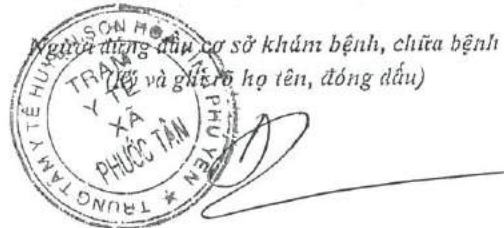 Người đứng đầu cơ sở khám bệnh, chữa bệnh
(ký và ghi rõ họ tên, đóng dấu)
TRUNG TÂM Y TẾ HUYỆN SƠN HÒA TỈNH PHÚ YÊN
TRẠM
Y TẾ
XÃ
PHƯỚC TÂN